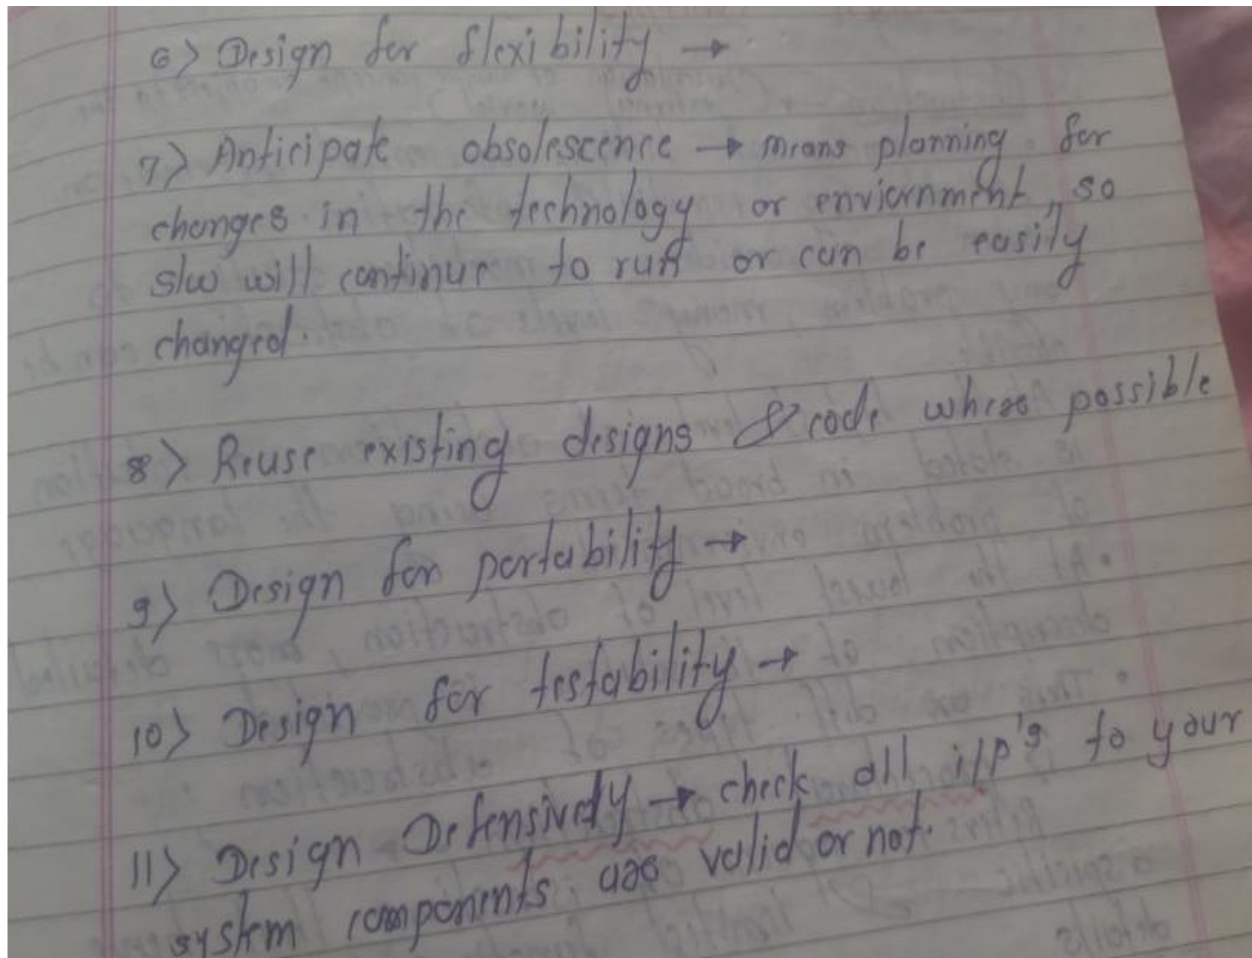 6> Design for flexibility →
7> Anticipate obsolescence → means planning for
changes in the technology or enviornment, so
s/w will continue to run or can be easily
changed.
8> Reuse existing designs & code where possible
9> Design for portability →
10> Design for testability →
11> Design Defensively → check all i/p's to your
system components are valid or not.